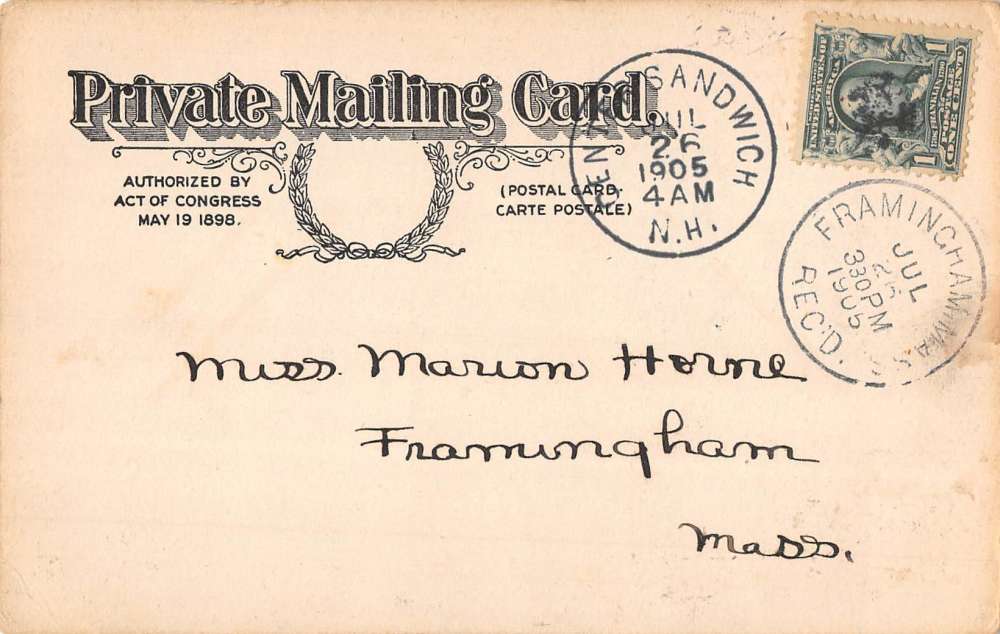 Private Mailing Card.
AUTHORIZED BY
ACT OF CONGRESS
MAY 19 1898.
(POSTAL CARD-
CARTE POSTALE)
SANDWICH
JUL
26
1905
4 AM
N.H.
1 1
FRAMINGHAM, MASS.
JUL
26
330PM
1905
REC'D.
Miss. Marion Horne
Framingham
Mass.